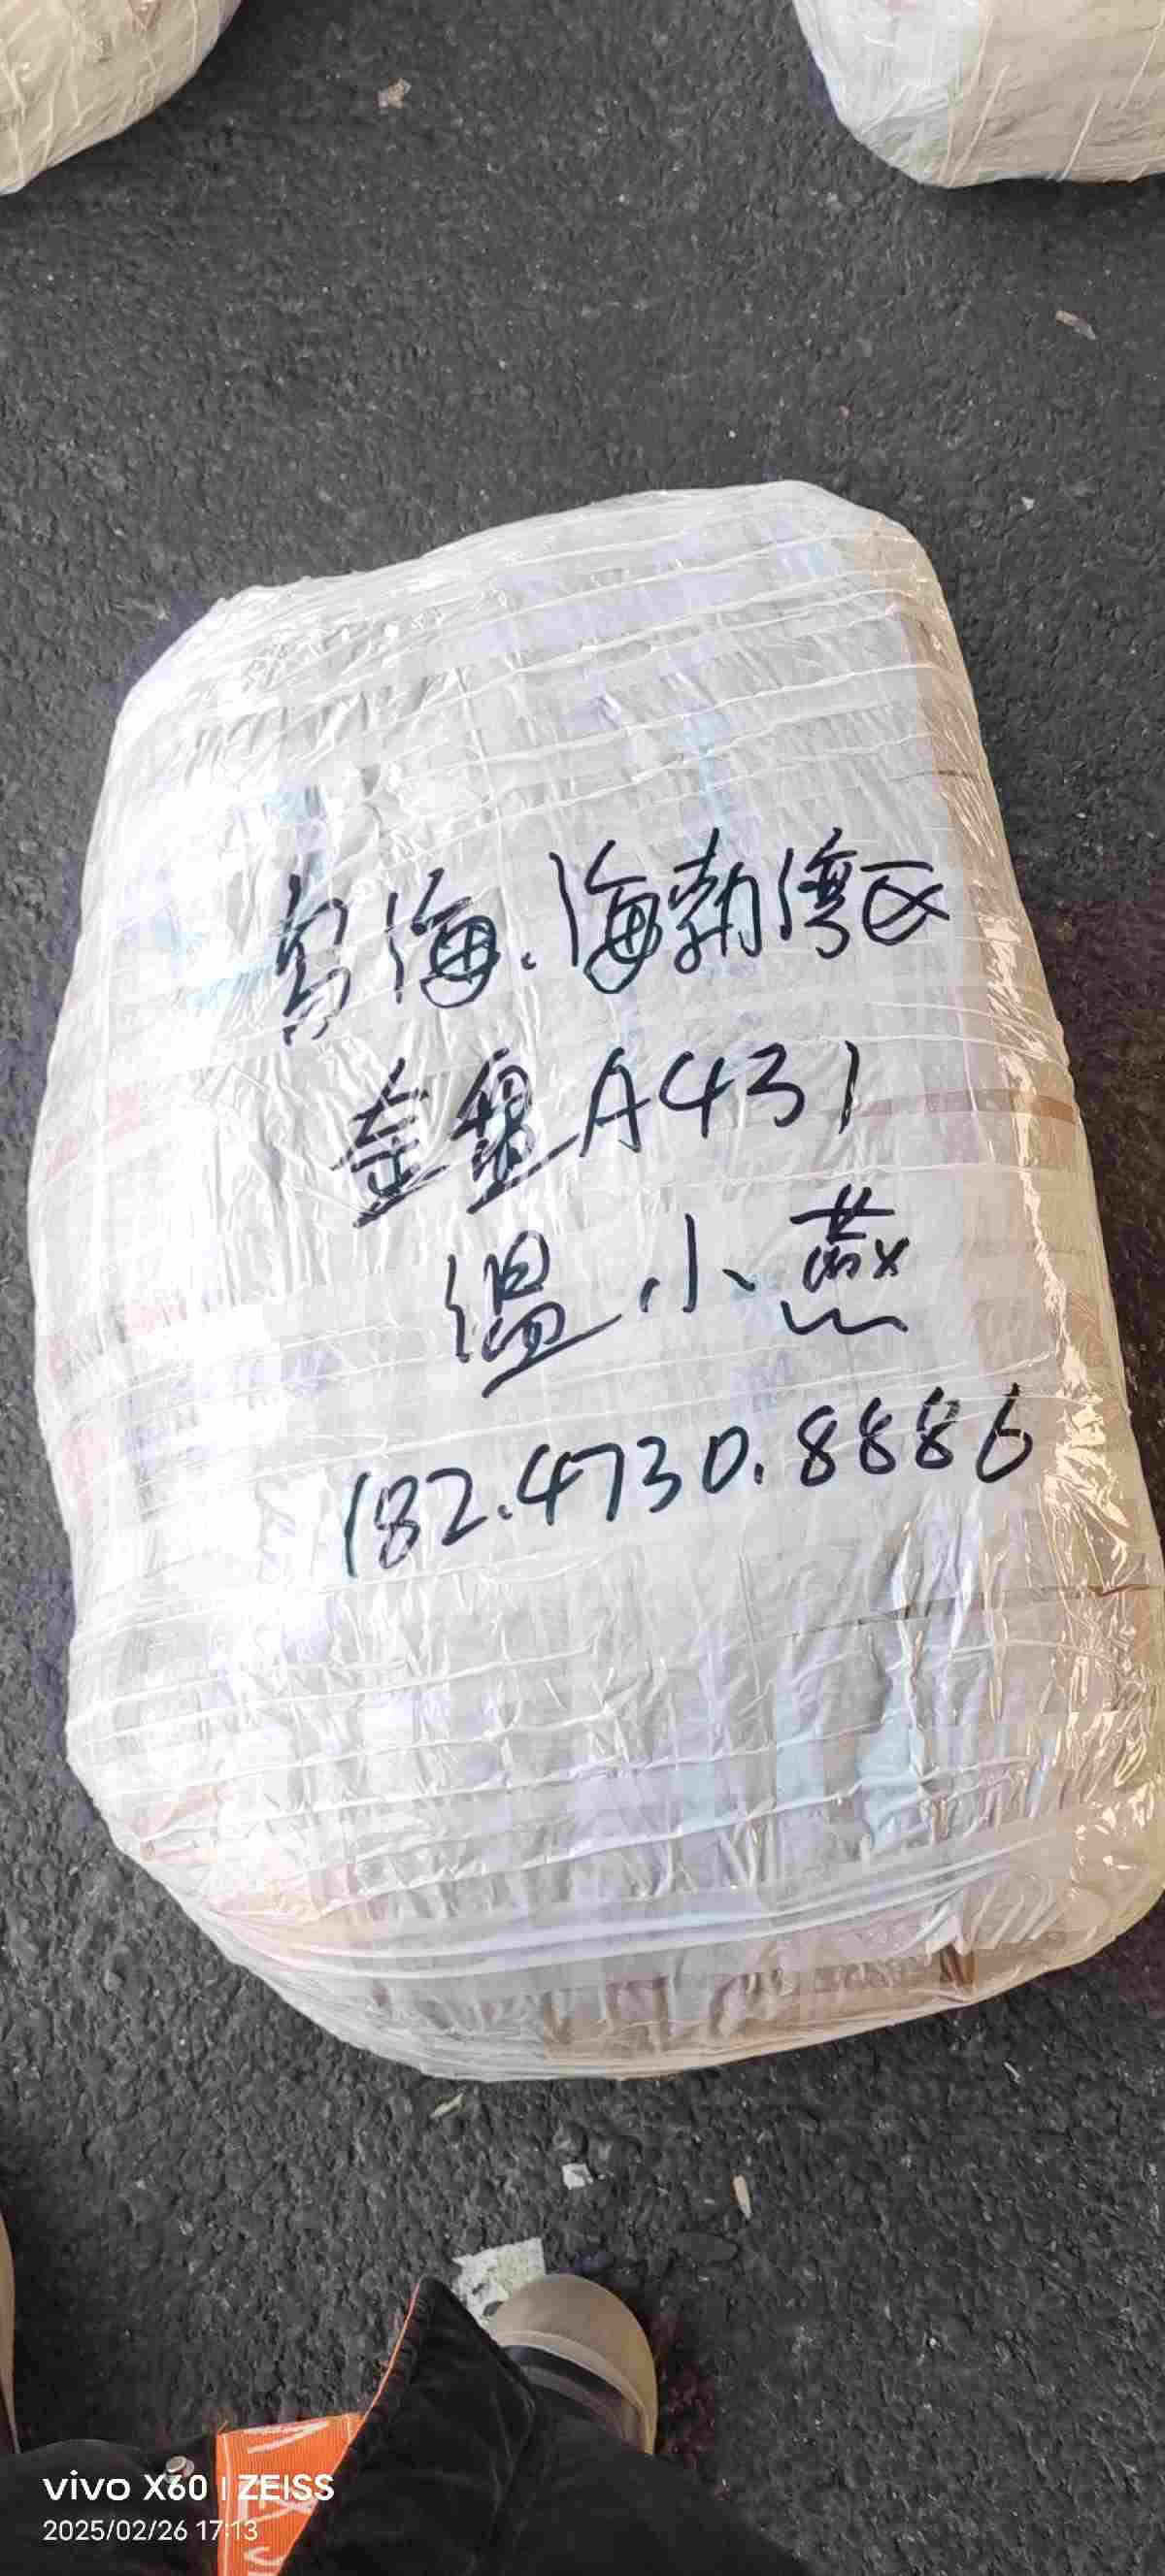 乌海.海勃湾区
金盘A431
温小燕
182.4730.8886
vivo X60 | ZEISS
2025/02/26 17:13